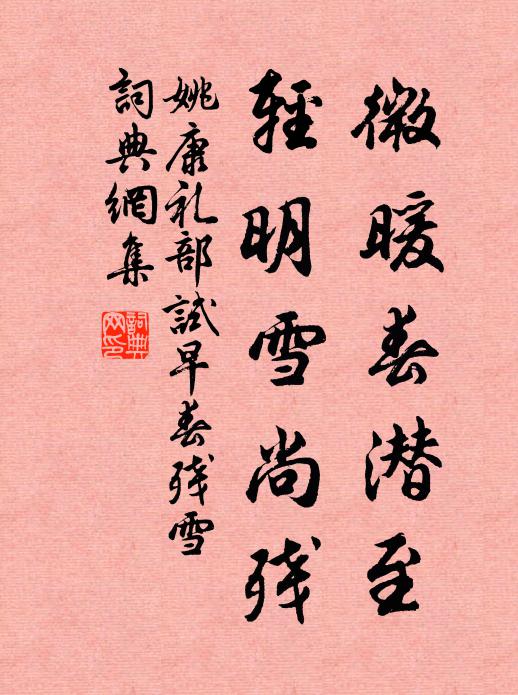 微暖春潜至
輕明雪尚残
姚康礼部試早春残雪
詞典網集
詞典
网印